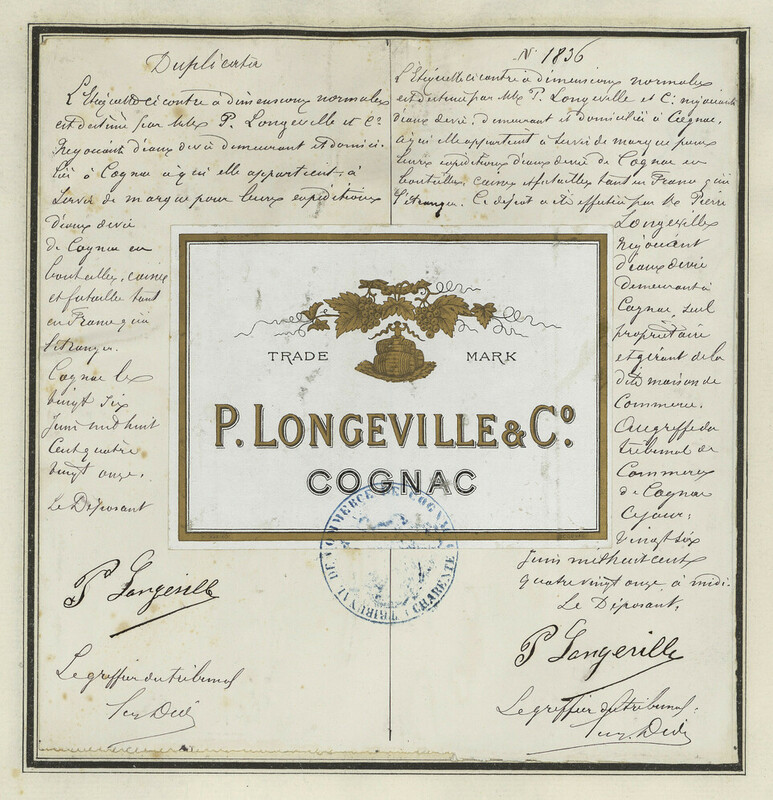 Duplicata
L'Etiquette ci contre à dimensions normales
est destiné par MM. P. Longeville et Cº
Négociants d'eaux de vie demeurant et domici-
liés à Cognac à qui elle appartient, à
servir de marque pour leurs expéditions
d'eaux de vie
de Cognac en
bouteilles, caisses
et futailles tant
en France qu'à
l'étranger.
Cognac le
vingt six
Juin mil huit
Cent quatre
vingt onze.
Le Déposant
P Longeville
Le greffier du tribunal
Nº 1836
L'Etiquette ci contre à dimensions normales
est destiné par MM. P. Longeville et C. négociants
d'eaux de vie, demeurant et domiciliés à Cognac,
à qui elle appartient à servir de marque pour
leurs expéditions d'eaux de vie de Cognac en
bouteilles, caisses et futailles tant en France qu'à
l'étranger. Ce dépôt a été effectué par Mr Pierre
Longeville
Négociant
d'eaux de vie
demeurant à
Cognac, seul
propriétaire
et gérant de la
dite maison de
Commerce.
Au greffe du
tribunal de
Commerce
de Cognac
Ce jour,
Vingt six
Juin mil huit cent
quatre vingt onze à midi.
Le Déposant,
P Longeville
Le greffier du tribunal.
TRADE MARK
P. LONGEVILLE & Cº.
COGNAC
TRIBUNAL DE COMMERCE DE COGNAC
(CHARENTE)